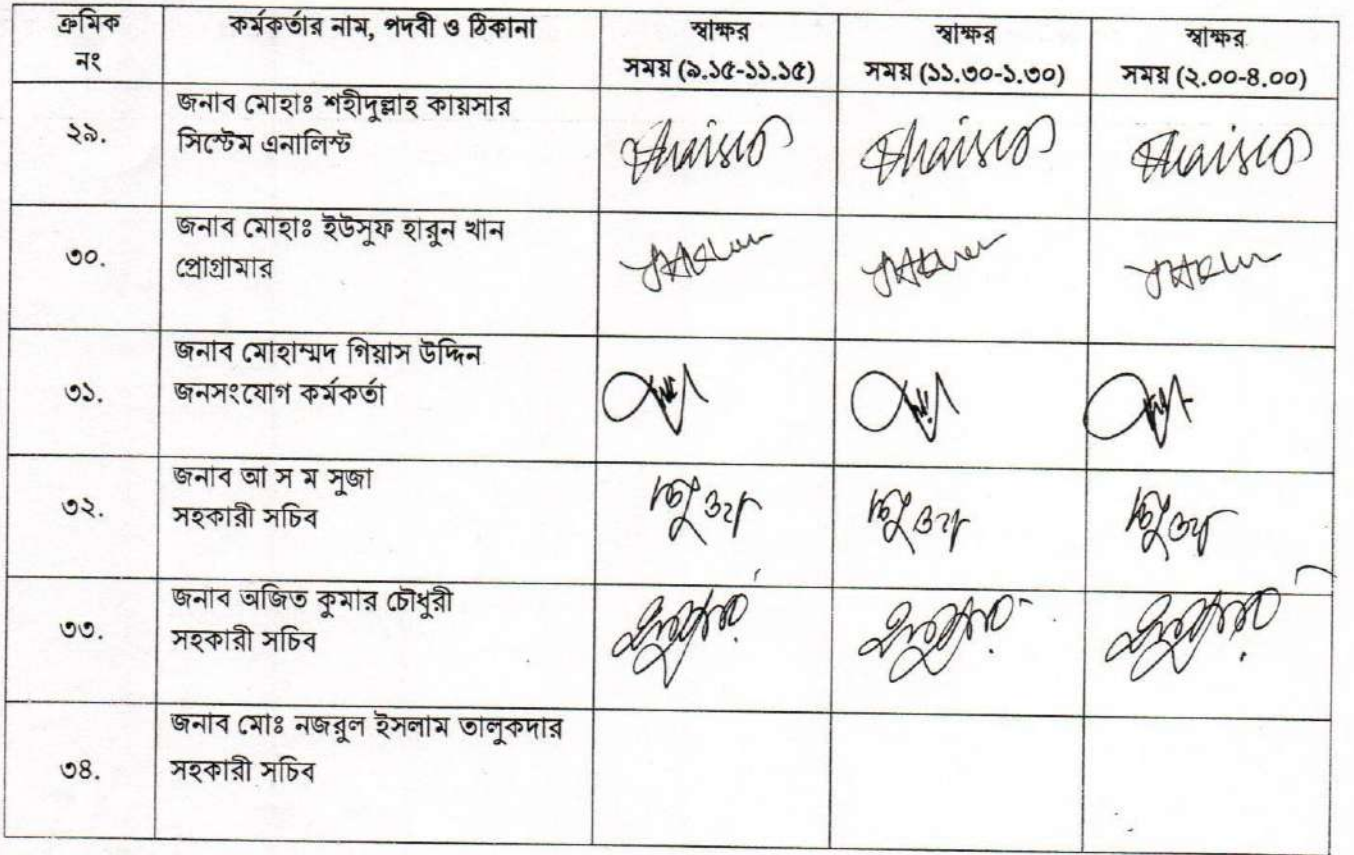 ক্রমিক নং কর্মকর্তার নাম, পদবী ও ঠিকানা স্বাক্ষর স্বাক্ষর স্বাক্ষর
সময় (৯.১৫-১১.১৫) সময় (১১.৩০-১.৩০) সময় (২.০০-৪.০০)
২৯. জনাব মোহাঃ শহীদুল্লাহ কায়সার
সিস্টেম এনালিস্ট
৩০. জনাব মোহাঃ ইউসুফ হারুন খান
প্রোগ্রামার
৩১. জনাব মোহাম্মদ গিয়াস উদ্দিন
জনসংযোগ কর্মকর্তা
৩২. জনাব আ স ম সুজা
সহকারী সচিব
৩৩. জনাব অজিত কুমার চৌধুরী
সহকারী সচিব
৩৪. জনাব মোঃ নজরুল ইসলাম তালুকদার
সহকারী সচিব